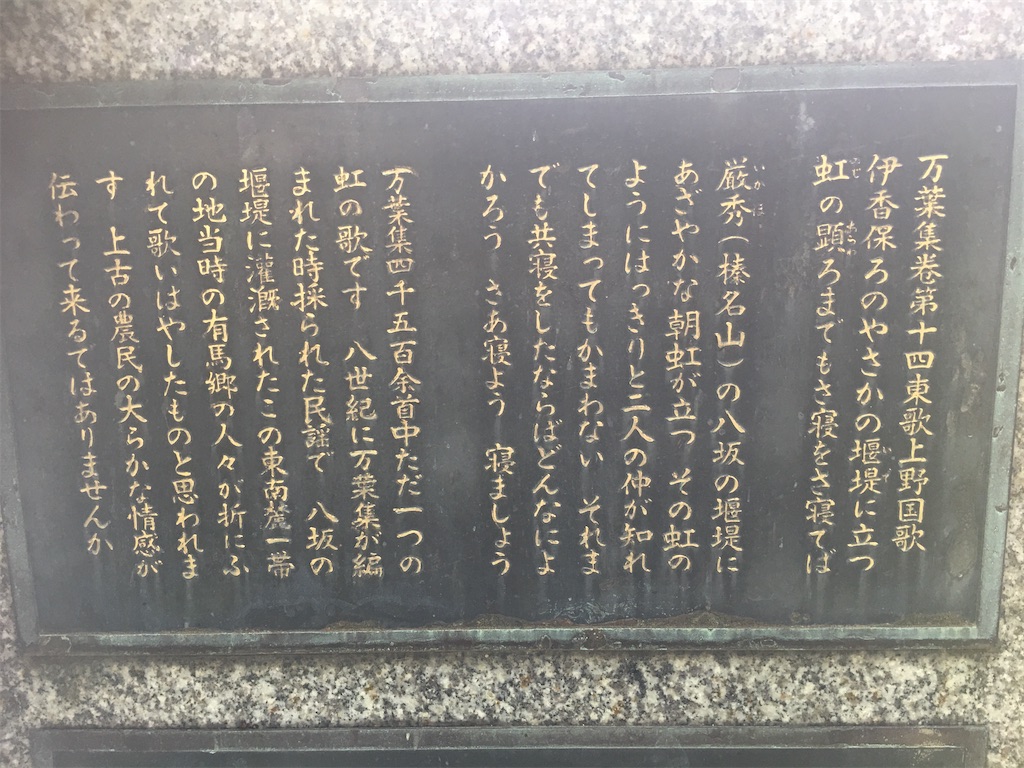 万葉集巻第十四東歌上野国歌
伊香保ろのやさかの堰堤に立つ
虹の顕ろまでもさ寝をさ寝てば
厳秀(榛名山)の八坂の堰堤に
あざやかな朝虹が立つ その虹の
ようにはっきりと二人の仲が知れ
てしまってもかまわない それま
でも共寝をしたならばどんなによ
かろう さあ寝よう 寝ましょう
万葉集四千五百余首中ただ一つの
虹の歌です 八世紀に万葉集が編
まれた時採られた民謡で 八坂の
堰堤に灌漑されたこの東南麓一帯
の地当時の有馬郷の人々が折にふ
れて歌いはやしたものと思われま
す 上古の農民の大らかな情感が
伝わって来るではありませんか